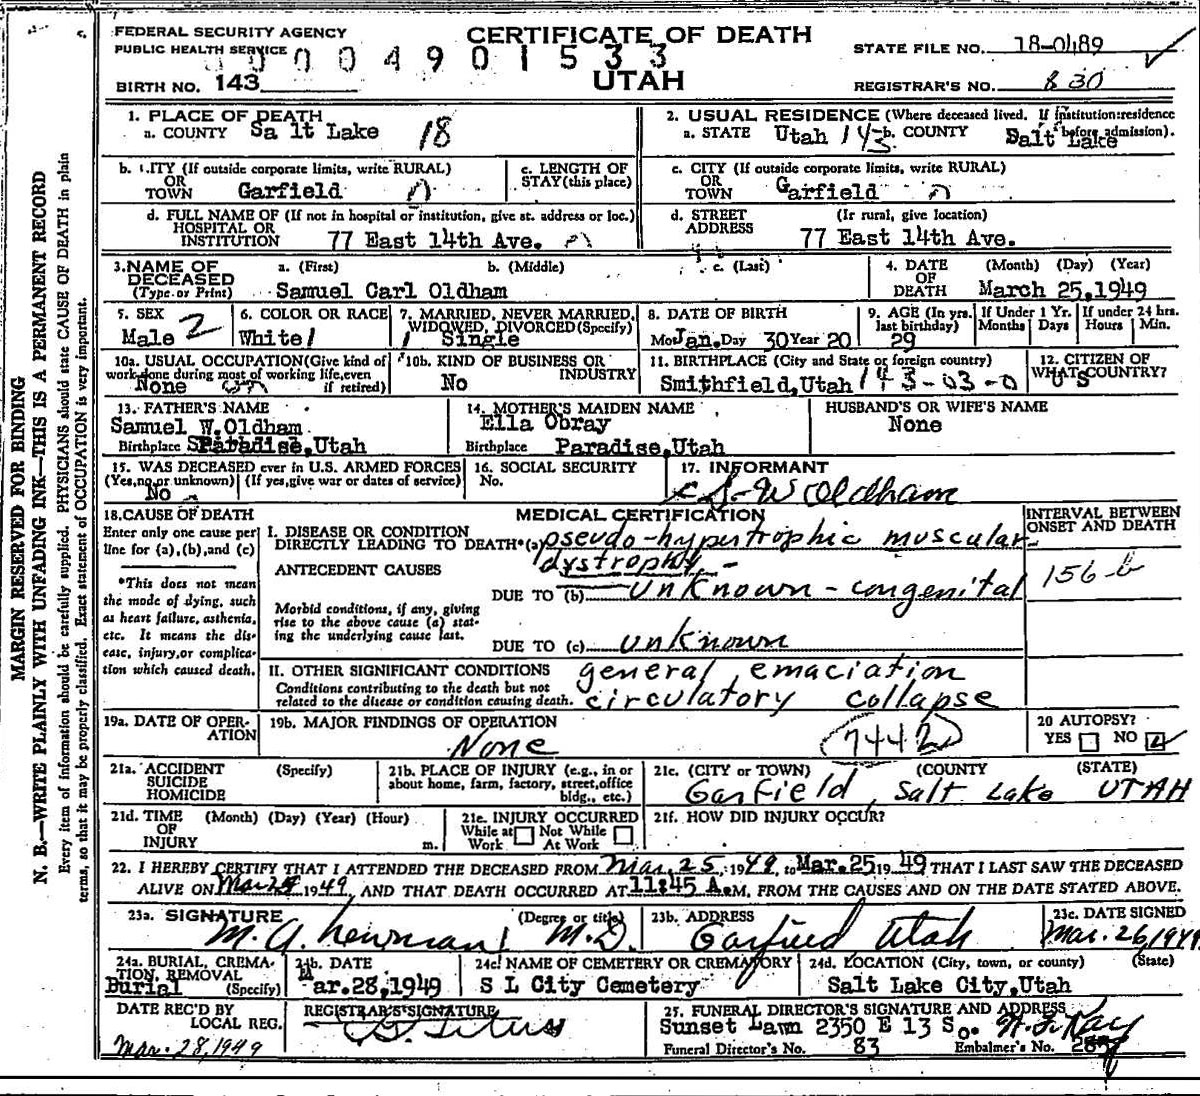 MARGIN RESERVED FOR BINDING
N. B.—WRITE PLAINLY WITH UNFADING INK—THIS IS A PERMANENT RECORD
Every item of information should be carefully supplied. PHYSICIANS should state CAUSE OF DEATH in plain
terms, so that it may be properly classified. Exact statement of OCCUPATION is very important.
FEDERAL SECURITY AGENCY
PUBLIC HEALTH SERVICE
CERTIFICATE OF DEATH
UTAH
00004901533
STATE FILE NO. 18-0489
BIRTH NO. 143
REGISTRAR'S NO. 830
1. PLACE OF DEATH
a. COUNTY Sa lt Lake 18
2. USUAL RESIDENCE (Where deceased lived. If institution:residence before admission).
a. STATE Utah 143 b. COUNTY Salt Lake
b. CITY (If outside corporate limits, write RURAL)
OR TOWN Garfield
c. LENGTH OF STAY (this place)
c. CITY (If outside corporate limits, write RURAL)
OR TOWN Garfield
d. FULL NAME OF (If not in hospital or institution, give st. address or loc.)
HOSPITAL OR INSTITUTION 77 East 14th Ave.
d. STREET ADDRESS (Ir rural, give location)
77 East 14th Ave.
3. NAME OF DECEASED (Type or Print)
a. (First) b. (Middle) c. (Last)
Samuel Carl Oldham
4. DATE OF DEATH (Month) (Day) (Year)
March 25,1949
5. SEX
Male 2
6. COLOR OR RACE
White 1
7. MARRIED, NEVER MARRIED, WIDOWED, DIVORCED (Specify)
1 Single
8. DATE OF BIRTH
Mo. Jan. Day 30 Year 20
9. AGE (In yrs. last birthday)
29
If Under 1 Yr. Months Days
If under 24 hrs. Hours Min.
10a. USUAL OCCUPATION (Give kind of work done during most of working life, even if retired)
None
10b. KIND OF BUSINESS OR INDUSTRY
No
11. BIRTHPLACE (City and State or foreign country)
Smithfield,Utah 143-03-0
12. CITIZEN OF WHAT COUNTRY?
U S
13. FATHER'S NAME
Samuel W.Oldham
Birthplace Paradise,Utah
14. MOTHER'S MAIDEN NAME
Ella Obray
Birthplace Paradise,Utah
HUSBAND'S OR WIFE'S NAME
None
15. WAS DECEASED ever in U.S. ARMED FORCES
(Yes, no, or unknown) (If yes, give war or dates of service)
No
16. SOCIAL SECURITY
No.
17. INFORMANT
x S. W Oldham
18. CAUSE OF DEATH
Enter only one cause per line for (a), (b), and (c)
*This does not mean the mode of dying, such as heart failure, asthenia, etc. It means the disease, injury, or complication which caused death.
MEDICAL CERTIFICATION
INTERVAL BETWEEN ONSET AND DEATH
I. DISEASE OR CONDITION DIRECTLY LEADING TO DEATH* (a) pseudo-hypertrophic muscular dystrophy -
ANTECEDENT CAUSES
Morbid conditions, if any, giving rise to the above cause (a) stating the underlying cause last.
DUE TO (b) unknown - congenital
156-b
DUE TO (c) unknown
II. OTHER SIGNIFICANT CONDITIONS
Conditions contributing to the death but not related to the disease or condition causing death.
general emaciation
circulatory collapse
19a. DATE OF OPERATION
19b. MAJOR FINDINGS OF OPERATION
None
7442
20 AUTOPSY?
YES NO
21a. ACCIDENT SUICIDE HOMICIDE (Specify)
21b. PLACE OF INJURY (e.g., in or about home, farm, factory, street, office bldg., etc.)
21c. (CITY or TOWN) (COUNTY) (STATE)
Garfield, Salt Lake UTAH
21d. TIME OF INJURY (Month) (Day) (Year) (Hour) m.
21e. INJURY OCCURRED
While at Work Not While At Work
21f. HOW DID INJURY OCCUR?
22. I HEREBY CERTIFY THAT I ATTENDED THE DECEASED FROM Mar. 25, 1949, to Mar.25 19 49 THAT I LAST SAW THE DECEASED
ALIVE ON Mar 25 1949, AND THAT DEATH OCCURRED AT 11:45 A.M, FROM THE CAUSES AND ON THE DATE STATED ABOVE.
23a. SIGNATURE (Degree or title)
M. A. Newman M.D.
23b. ADDRESS
Garfield Utah
23c. DATE SIGNED
Mar. 26, 1949
24a. BURIAL, CREMATION, REMOVAL (Specify)
Burial
24b. DATE
Mar.28,1949
24c. NAME OF CEMETERY OR CREMATORY
S L City Cemetery
24d. LOCATION (City, town, or county) (State)
Salt Lake City,Utah
DATE REC'D BY LOCAL REG.
Mar. 28, 1949
REGISTRAR'S SIGNATURE
25. FUNERAL DIRECTOR'S SIGNATURE AND ADDRESS
Sunset Lawn 2350 E 13 So.
Funeral Director's No. 83 Embalmer's No.